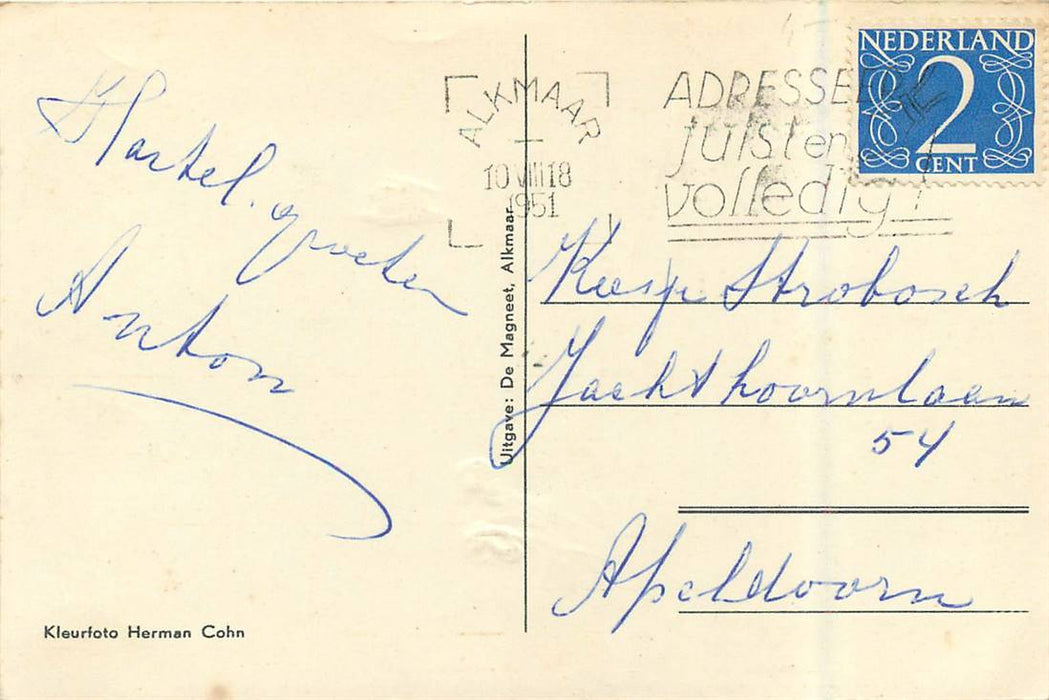 Hartel. groeten
Anton
Kleurfoto Herman Cohn
Uitgave: De Magneet, Alkmaar
ALKMAAR
10 VIII 18
1951
ADRESSEER
juist en
volledig!
NEDERLAND
2
CENT
Strobosch
Jachthoornlaan
54
Apeldoorn